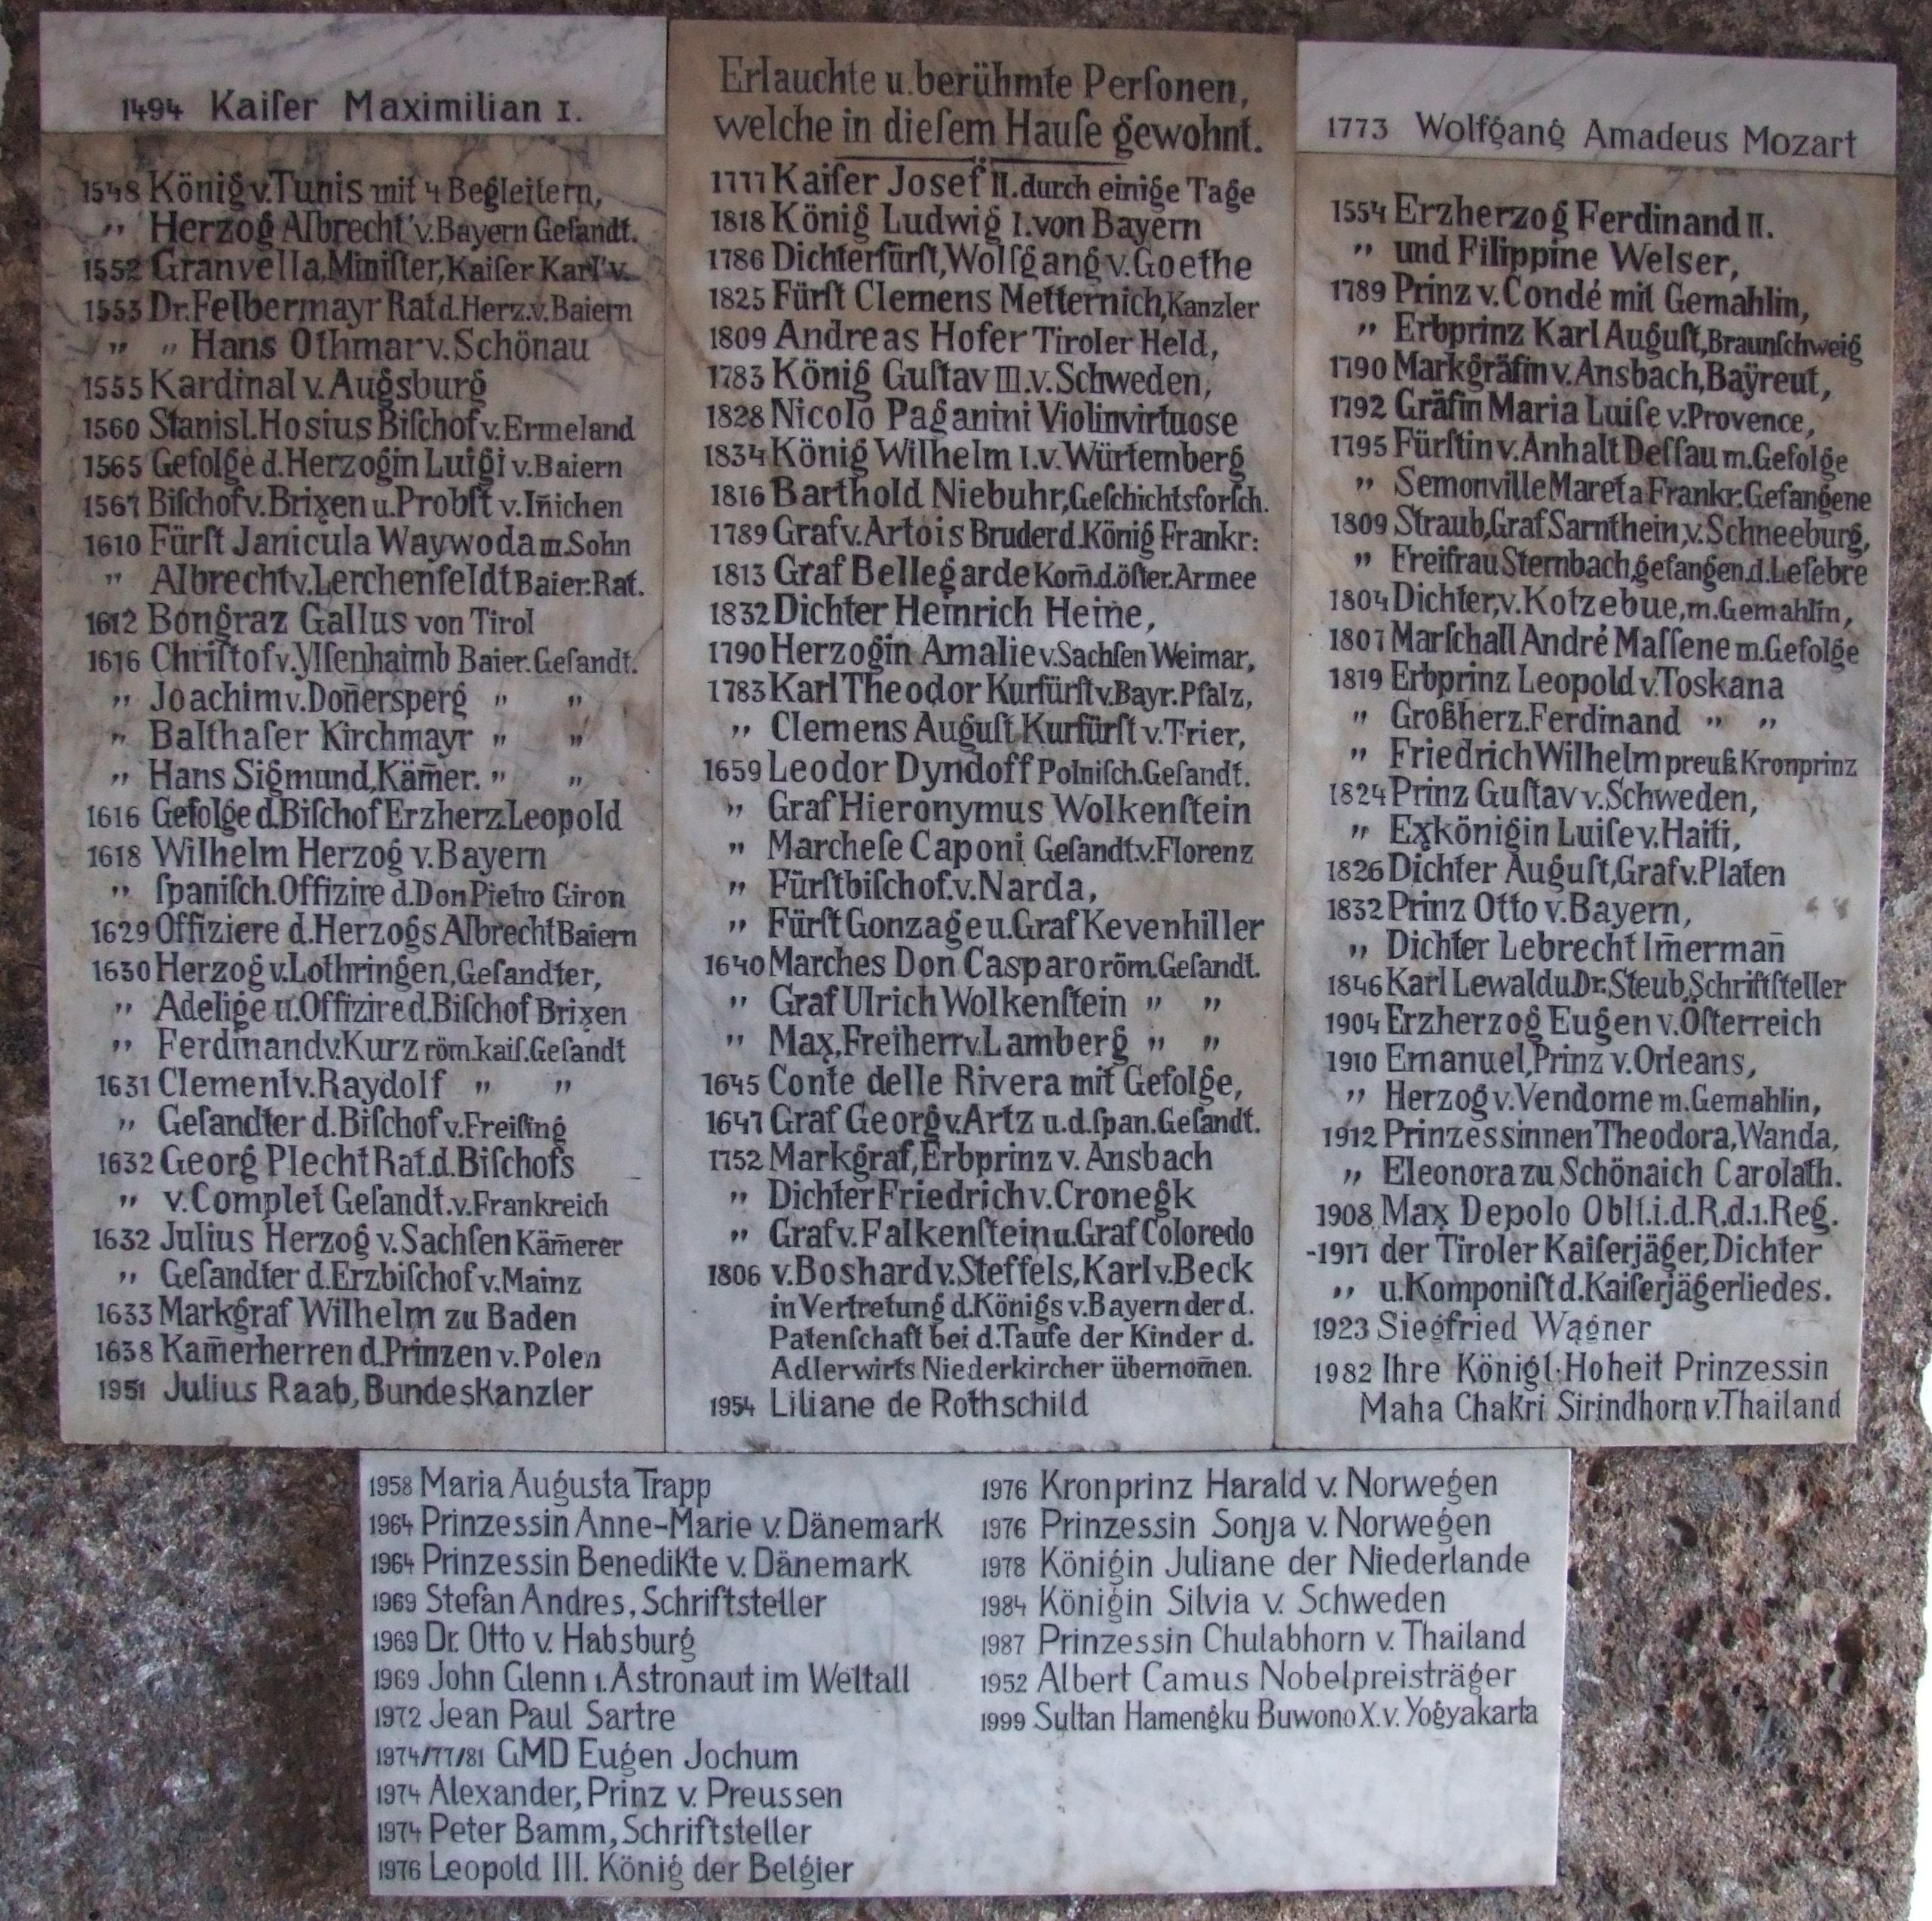 1494 Kaiſer Maximilian I.
1548 König v. Tunis mit 4 Begleitern,
" Herzog Albrecht v. Bayern Geſandt.
1552 Granvella, Miniſter, Kaiſer Karl v.
1553 Dr. Felbermayr Rat d. Herz. v. Baiern
" " Hans Othmar v. Schönau
1555 Kardinal v. Augsburg
1560 Stanisl. Hosius Biſchof v. Ermeland
1565 Gefolge d. Herzogin Luigi v. Baiern
1567 Biſchof v. Brixen u. Probſt v. In̄ichen
1610 Fürſt Janicula Waywoda m. Sohn
" Albrecht v. Lerchenfeldt Baier. Rat.
1612 Bongraz Gallus von Tirol
1616 Chriſtof v. Ylſenhaimb Baier. Geſandt.
" Joachim v. Don̄ersperg " "
" Balthaſer Kirchmayr " "
" Hans Sigmund, Käm̄er. " "
1616 Gefolge d. Biſchof Erzherz. Leopold
1618 Wilhelm Herzog v. Bayern
" ſpaniſch. Offizire d. Don Pietro Giron
1629 Offiziere d. Herzogs Albrecht Baiern
1630 Herzog v. Lothringen, Geſandter,
" Adelige u. Offizire d. Biſchof Brixen
" Ferdinand v. Kurz röm. kaiſ. Geſandt
1631 Clement v. Raydolf " "
" Geſandter d. Biſchof v. Freiſing
1632 Georg Plecht Rat. d. Biſchofs
" v. Complet Geſandt. v. Frankreich
1632 Julius Herzog v. Sachſen Käm̄erer
" Geſandter d. Erzbiſchof v. Mainz
1633 Markgraf Wilhelm zu Baden
1638 Kam̄erherren d. Prinzen v. Polen
1951 Julius Raab, Bundeskanzler
Erlauchte u. berühmte Perſonen,
welche in dieſem Hauſe gewohnt.
1777 Kaiſer Josef II. durch einige Tage
1818 König Ludwig I. von Bayern
1786 Dichterfürſt, Wolfgang v. Goethe
1825 Fürſt Clemens Metternich, Kanzler
1809 Andreas Hofer Tiroler Held,
1783 König Guſtav III. v. Schweden,
1828 Nicolo Paganini Violinvirtuose
1834 König Wilhelm I. v. Würtemberg
1816 Barthold Niebuhr, Geſchichtsforſch.
1789 Graf v. Artois Bruder d. König Frankr:
1813 Graf Bellegarde Kom̄. d. öſter. Armee
1832 Dichter Heinrich Heine,
1790 Herzogin Amalie v. Sachſen Weimar,
1783 Karl Theodor Kurfürſt v. Bayr. Pfalz,
" Clemens Auguſt Kurfürſt v. Trier,
1659 Leodor Dyndoff Polniſch. Geſandt.
" Graf Hieronymus Wolkenſtein
" Marcheſe Caponi Geſandt. v. Florenz
" Fürſtbiſchof. v. Narda,
" Fürſt Gonzage u. Graf Kevenhiller
1640 Marches Don Casparo röm. Geſandt.
" Graf Ulrich Wolkenſtein " "
" Max, Freiherr v. Lamberg " "
1645 Conte delle Rivera mit Gefolge,
1647 Graf Georg v. Artz u. d. ſpan. Geſandt.
1752 Markgraf, Erbprinz v. Ansbach
" Dichter Friedrich v. Cronegk
" Graf v. Falkenſtein u. Graf Coloredo
1806 v. Boshard v. Steffels, Karl v. Beck
in Vertretung d. Königs v. Bayern der d.
Patenſchaft bei d. Taufe der Kinder d.
Adlerwirts Niederkircher übernom̄en.
1954 Liliane de Rothschild
1773 Wolfgang Amadeus Mozart
1554 Erzherzog Ferdinand II.
" und Filippine Welser,
1789 Prinz v. Condé mit Gemahlin,
" Erbprinz Karl Auguſt, Braunſchweig
1790 Markgräfin v. Ansbach, Baÿreut,
1792 Gräfin Maria Luiſe v. Provence,
1795 Fürſtin v. Anhalt Deſſau m. Gefolge
" Semonville Mareta Frankr. Gefangene
1809 Straub, Graf Sarnthein, v. Schneeburg,
" Freifrau Sternbach, gefangen. d. Lefebre
1804 Dichter, v. Kotzebue, m. Gemahlin,
1807 Marſchall André Maſſene m. Gefolge
1819 Erbprinz Leopold v. Toskana
" Großherz. Ferdinand " "
" Friedrich Wilhelm preuß. Kronprinz
1824 Prinz Guſtav v. Schweden,
" Exkönigin Luiſe v. Haiti,
1826 Dichter Auguſt, Graf v. Platen
1832 Prinz Otto v. Bayern,
" Dichter Lebrecht Im̄erman̄
1846 Karl Lewald u. Dr. Steub, Schriftſteller
1904 Erzherzog Eugen v. Öſterreich
1910 Emanuel, Prinz v. Orleans,
" Herzog v. Vendome m. Gemahlin,
1912 Prinzessinnen Theodora, Wanda,
" Eleonora zu Schönaich Carolath.
1908 Max Depolo Oblt. i. d. R. d. 1. Reg.
-1917 der Tiroler Kaiſerjäger, Dichter
" u. Komponiſt d. Kaiſerjägerliedes.
1923 Siegfried Wagner
1982 Ihre Königl. Hoheit Prinzessin
Maha Chakri Sirindhorn v. Thailand
1958 Maria Augusta Trapp
1964 Prinzessin Anne-Marie v. Dänemark
1964 Prinzessin Benedikte v. Dänemark
1969 Stefan Andres, Schriftsteller
1969 Dr. Otto v. Habsburg
1969 John Glenn 1. Astronaut im Weltall
1972 Jean Paul Sartre
1974/77/81 GMD Eugen Jochum
1974 Alexander, Prinz v. Preussen
1974 Peter Bamm, Schriftsteller
1976 Leopold III. König der Belgier
1976 Kronprinz Harald v. Norwegen
1976 Prinzessin Sonja v. Norwegen
1978 Königin Juliane der Niederlande
1984 Königin Silvia v. Schweden
1987 Prinzessin Chulabhorn v. Thailand
1952 Albert Camus Nobelpreisträger
1999 Sultan Hamengku Buwono X. v. Yogyakarta